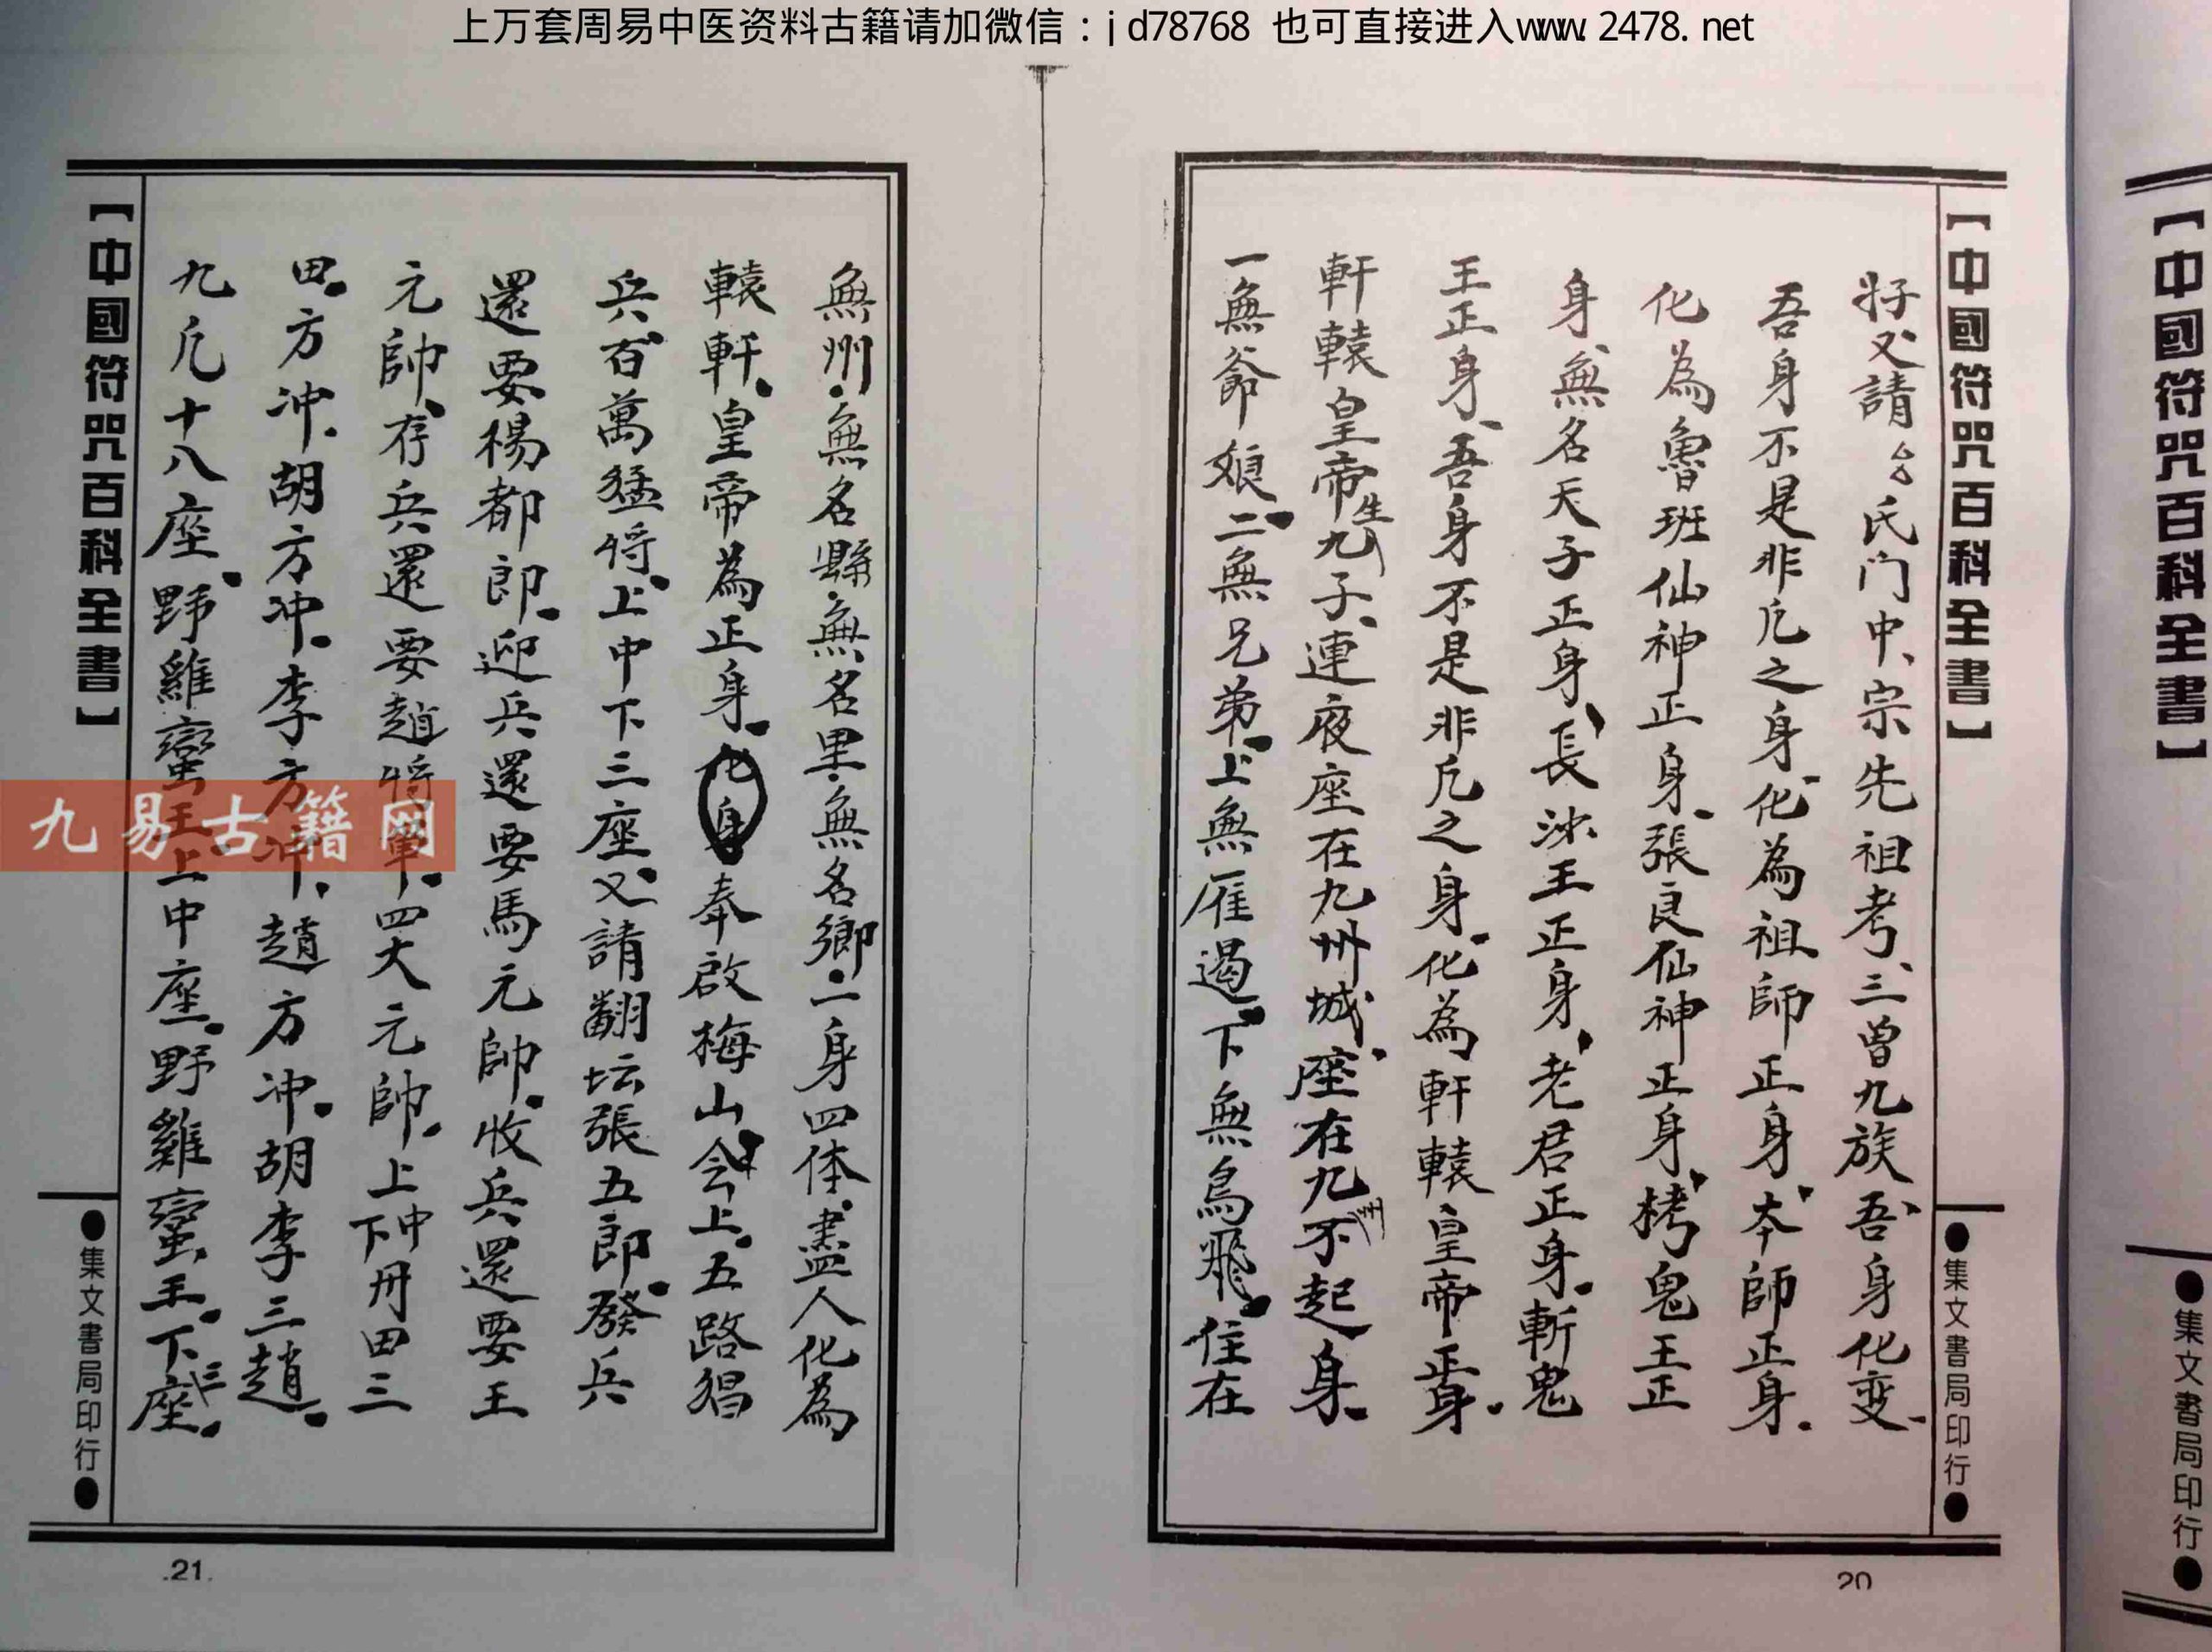 上万套周易中医资料古籍请加微信：jd78768 也可直接进入www.2478.net
【中國符咒百科全書】
●集文書局印行●
【中國符咒百科全書】
●集文書局印行●
又請 氏门中、宗先祖考、三曾九族、吾身化变、
吾身不是非凢之身、化為祖師正身、本師正身、
化為魯班仙神正身、張良仙神正身、栲鬼王正
身、無名天子正身、長沙王正身、老君正身、斬鬼
王正身、吾身不是非凢之身、化為軒轅皇帝正身、
軒轅皇帝生九子、連夜座在九州城、座在九州不起身、
一無爺娘、二無兄弟、上無雁遏、下無鳥飛、住在
20
無州、無名縣、無名里、無名鄉、二身四体、盡人化為
轅軒、皇帝為正身、化身奉啟梅山会上、五路猖
兵、百萬猛将、上中下三座、又請翻坛張五郎、發兵
還要楊都郎、迎兵還要馬元帥、收兵還要王
元帥、存兵還要趙将軍、四大元帥、上中下丹田三
田、方冲、胡方冲、李方冲、趙方冲、胡李三趙、
九凢十八座、野雞蠻王上中座、野雞蠻王、下三座、
【中國符咒百科全書】
●集文書局印行●
21
九易古籍网